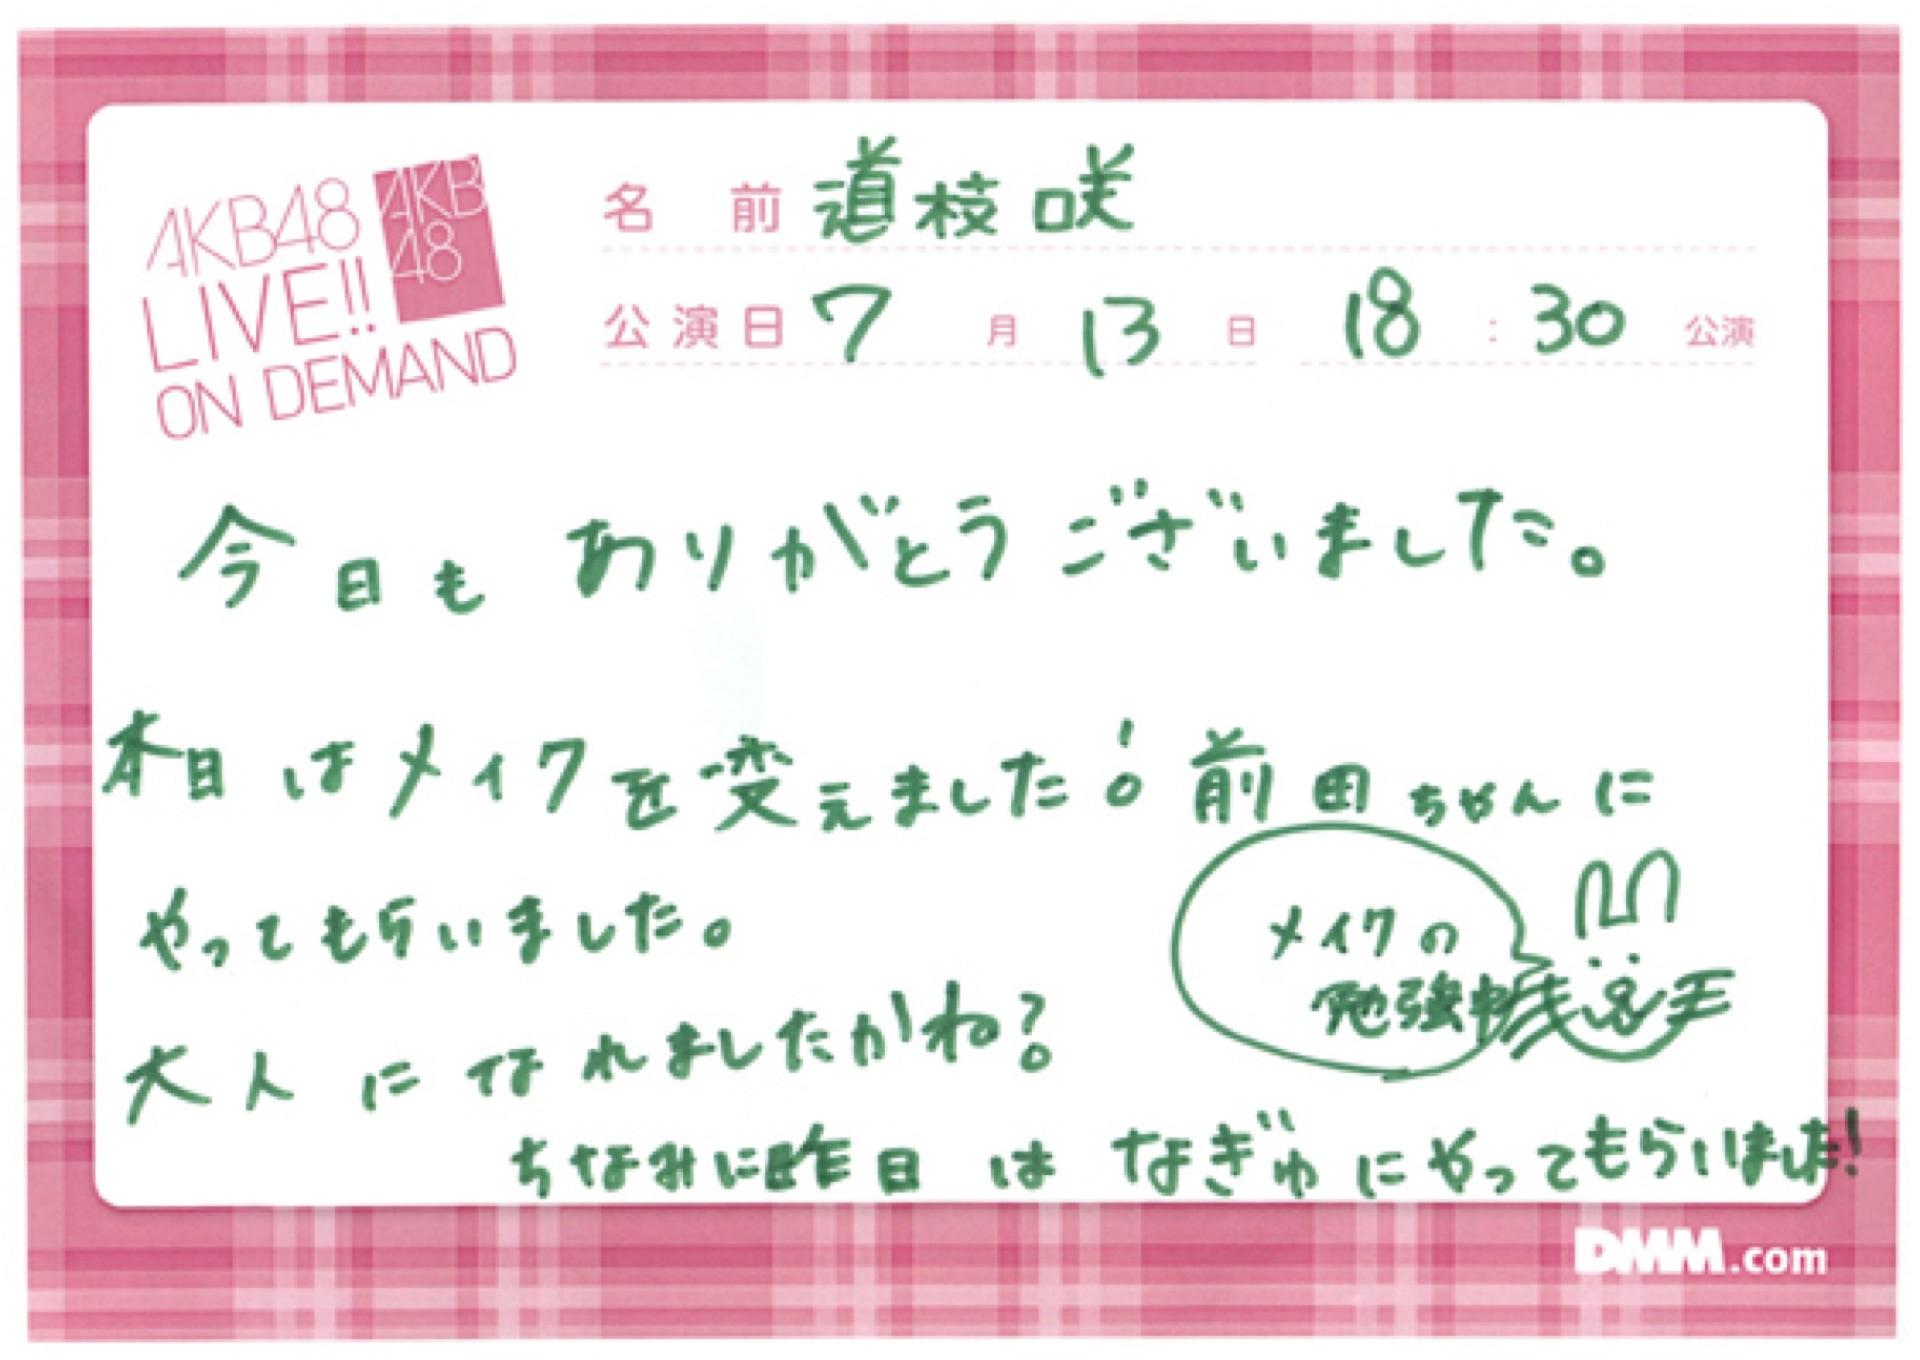 AKB48
LIVE!!
ON DEMAND
AKB
48
名前 道枝咲
公演日 7月13日 18:30公演
今日もありがとうございました。
本日はメイクを変えました!前田ちゃんに
やってもらいました。
メイクの
勉強中
大人になれましたかね?
ちなみに昨日はなぎゅにやってもらいました!
DMM.com